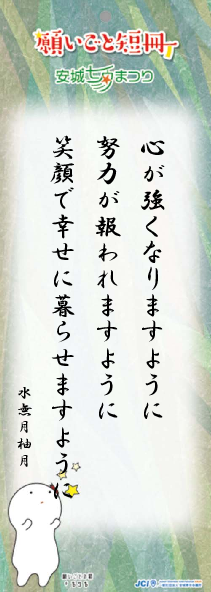 願いごと短冊
安城七夕まつり
心が強くなりますように
努力が報われますように
笑顔で幸せに暮らせますように
水無月柚月
JCI